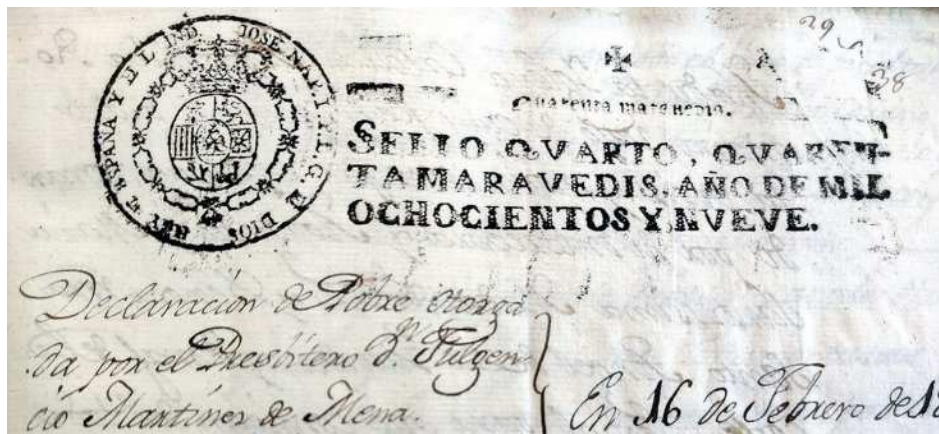 JOSE NAP. I P. L. G. D DIOS REY D ESPAÑA Y D L IND
29
38
Quarenta maravedis.
SELLO QVARTO, QVAREN-
TA MARAVEDIS, AÑO DE MIL
OCHOCIENTOS Y NVEVE.
Declaracion de Pobre otorga
da por el Presbitero D.ⁿ Fulgen-
cio Martinez de Mena.
En 16 de Febrero de 18